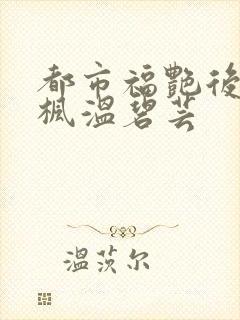 都市福艷後
楓溫碧芸
溫茨尔